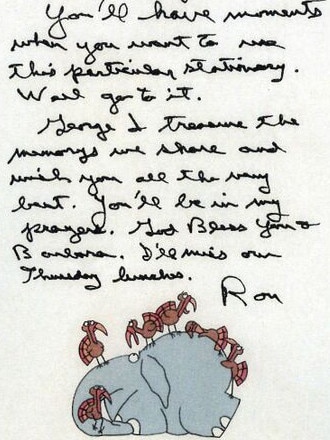 You'll have moments
when you want to use
this particular stationary.
Well go to it.
George I treasure the
memorys we share and
wish you all the very
best. You'll be in my
prayers. God Bless You &
Barbara. I'll miss our
Thursday lunches.
Ron